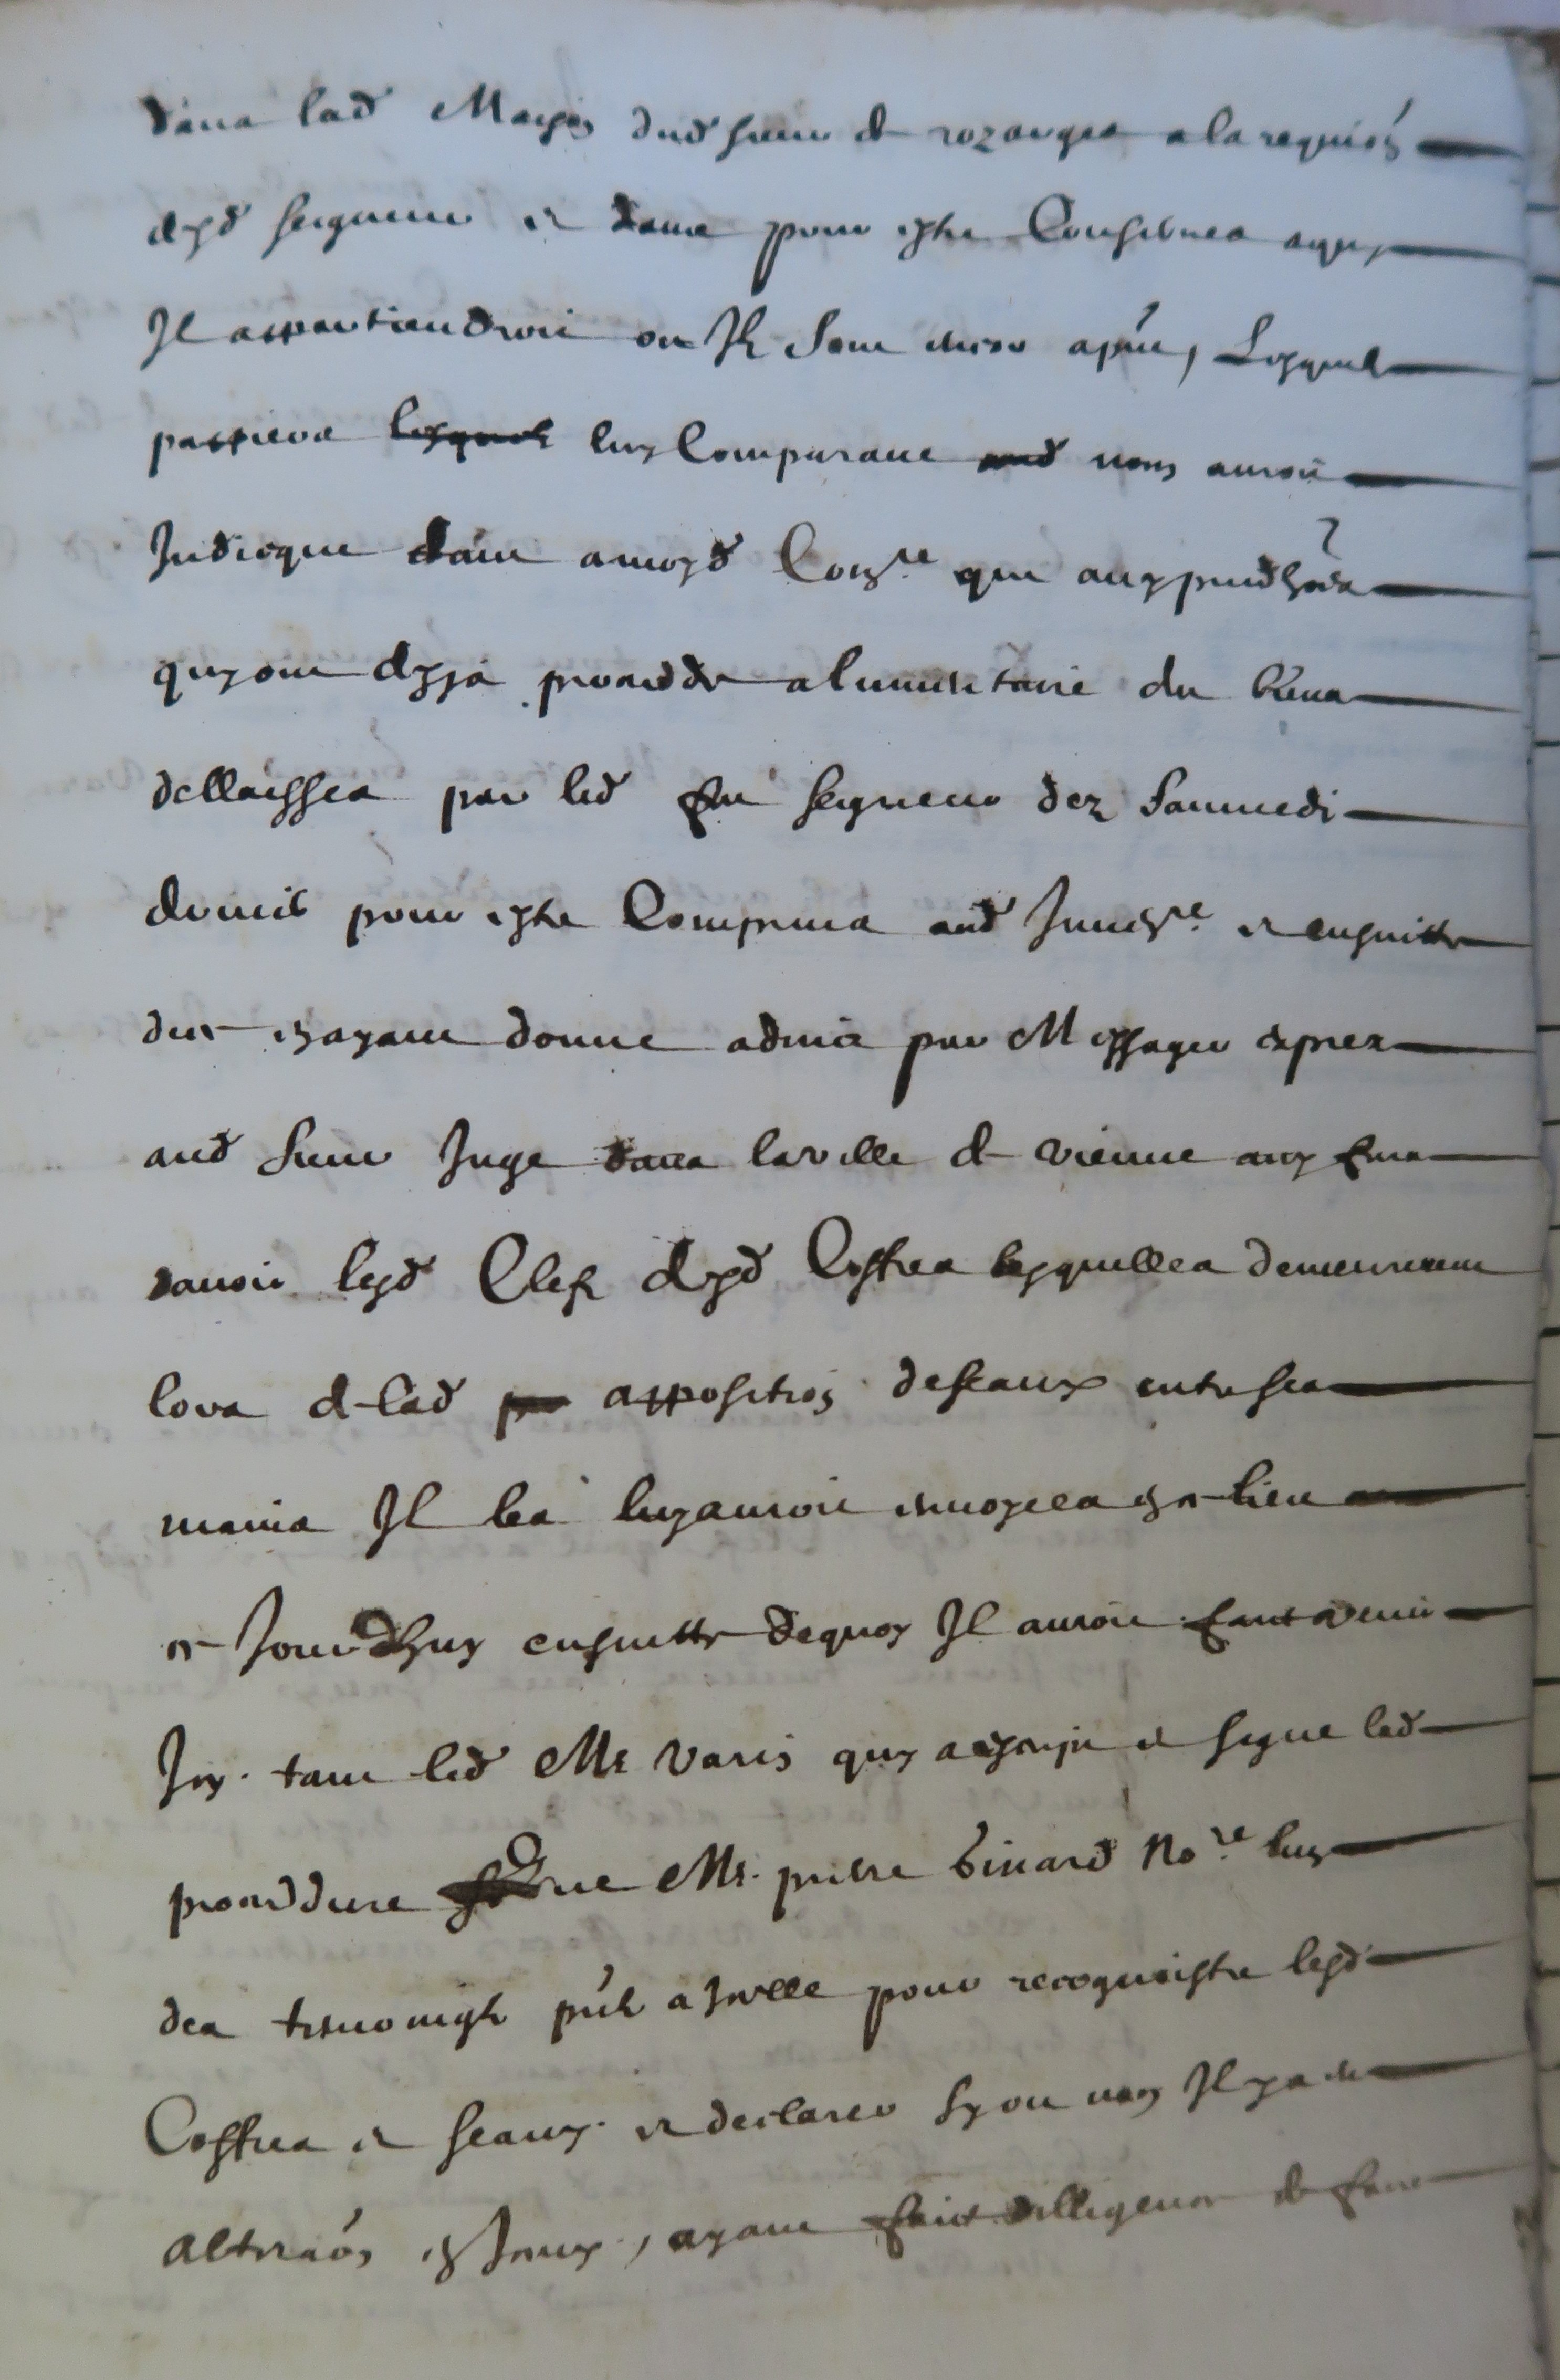 dans lad Maison dud sieur de rozanges a la requiõn
desd seigneur et dame pour estre Conserves a qui
Il appartiendroit ou Ilz sont encor apñt, Lesquels
pappiers lesquels luy Comparant aud nous auroit
Indicque tant a nousd Comre que aux prudhões
quy ont desja procedde a linventaire des biens
dellaisses par led feu seigneur dez sammedi
dernier pour estre Comprins aud Invre et ensuitte
de ce ayant donne advis par Messager exprez
aud sieur Juge dans la ville de vienne aux fins
davoir lesd Clefz desd Coffres lesquelles demeurerent
lors de lad apposition de seaux entre ses
mains Il les luy auroit envoyees en ce lieu
ce Jourdhuy ensuitte dequoy Il auroit faict venir
Icy tant led Me varin quy a escript et signe lad
proceddure que Me pierre binard Nore lung
des tesmoingtz pñtz a Icelle pour recognoistre lesd
Coffres et seaux et declarer sy ou non Il y a de
alteraõn en Iceux, ayant faict dilligence de faire